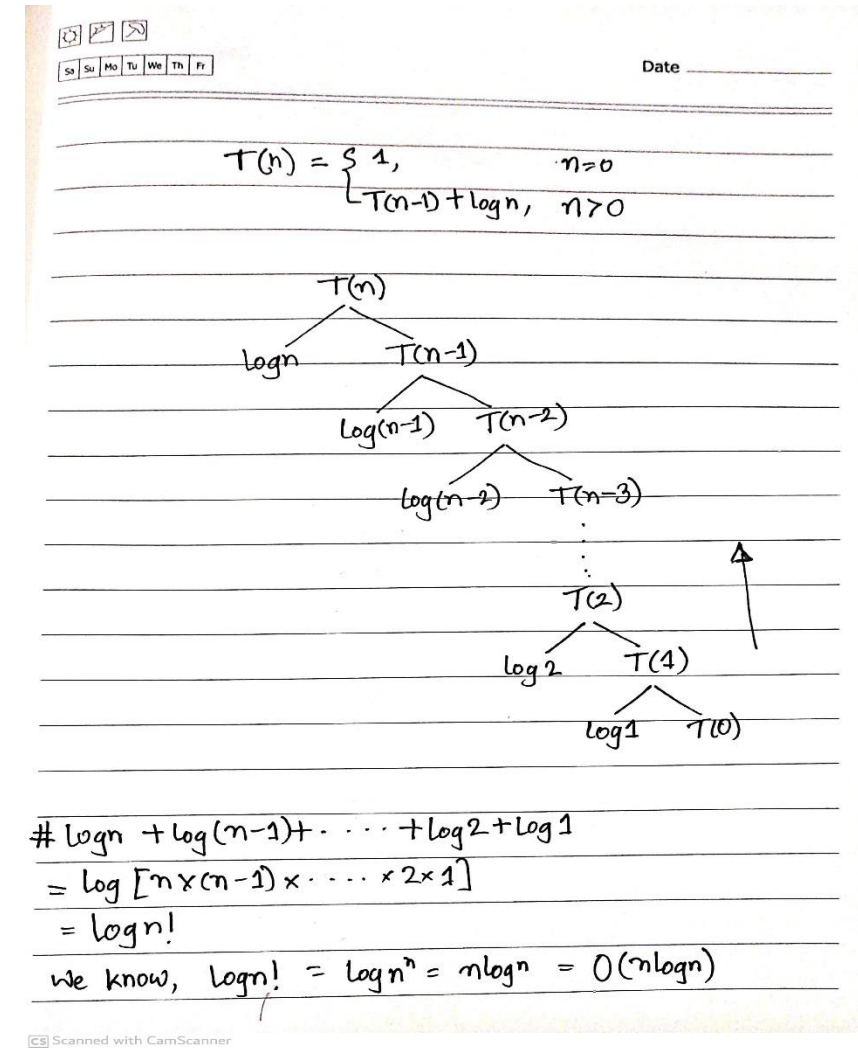 Sa Su Mo Tu We Th Fr
Date
T(n) = { 1, n=0
T(n-1) + logn, n>0
T(n)
logn T(n-1)
log(n-1) T(n-2)
log(n-2) T(n-3)
T(2)
log 2 T(1)
log1 T(0)
# logn + log(n-1)+ ..... + log2 + log 1
= log [n×(n-1)× ..... × 2×1]
= logn!
we know, logn! = lognⁿ = nlogn = O(nlogn)
CS Scanned with CamScanner